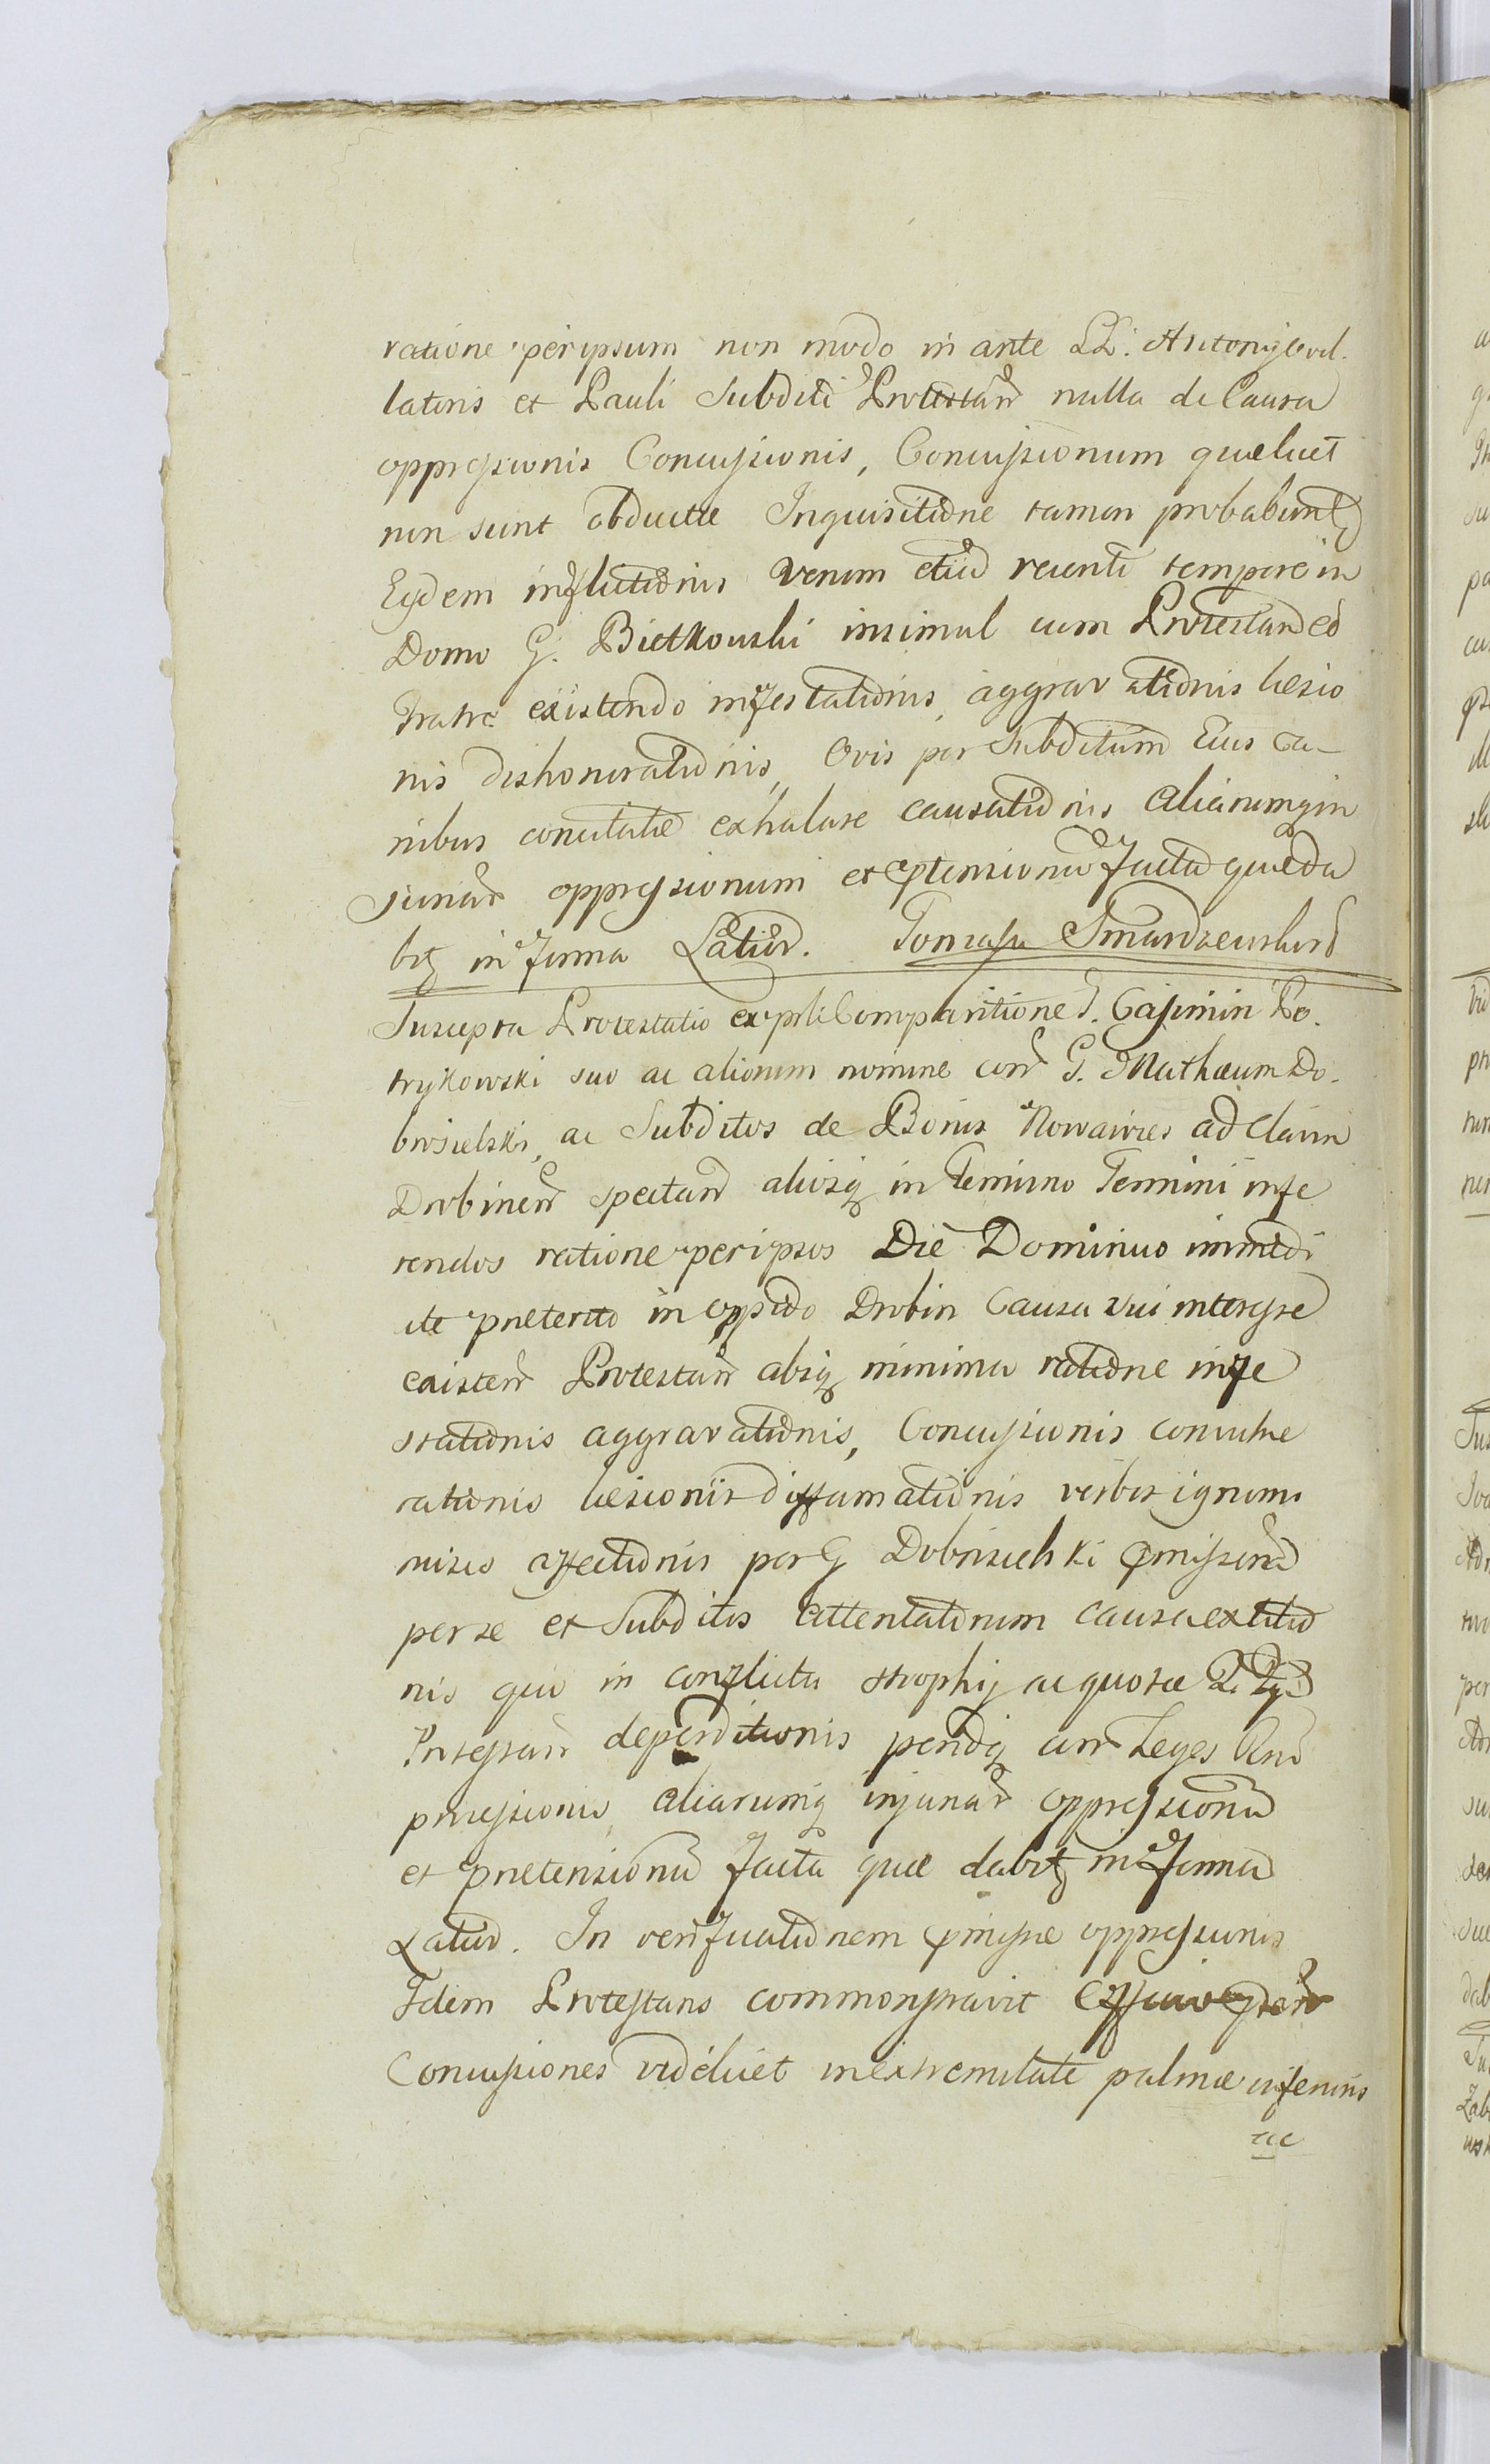 ratione per ipsum non modo in ante LL. Antonij
latoris et Pauli Subditi Protestan nulla de Causa
oppressionis Concussionis, Concussionum quælicet
non sunt obductæ Inquisitione tamen probabunt
Eydem inflictionis verum etiã recenti tempore in
Domo G. Bietkowski insimul cum Protestan eo
fratre existendo infestationis, aggravationis læsio
nis dishonorationis, Ovis per Subditum Eius Ca-
nibus concitatæ exhalare causationis Aliarumq in
juriar oppressionum et ptensionũ facta quæ da
btꝫ in forma Latior. Tomasz Smardzewski
Suscepta Protestatio ex prsti Comparitione G. Casimiri Po.
trykowski suo ac aliorum nomine con G. Mathæum Do.
brosielski, ac Subditos de Bonis Nowawies ad Clavem
Drobinen spectan aliosq in Termino Termini infe
rendos ratione per ipsos Die Dominico immedi
ate præterito in oppido Drobin Causa sui interesse
existen Protestan absq minima ratione infe
stationis aggravationis, Concussionis convulne
rationis læsionis diffamationis verbis ignomi
niosis affectionis per G Dobrosielski pmissorũ
per se et Subditos attentatorum causa extitio
nis quo in conflictu strophij ac quotæ
Protestan deperditionis pendq con Leges
processionis aliarumq injuriar oppressionũ
et prætensionũ facta quæ dabitꝫ in forma
Latiõ. In verificationem pmissæ oppressionis
Idem Protestans commonstravit
Concussiones videlicet in extremitate palmæ inferius
ac